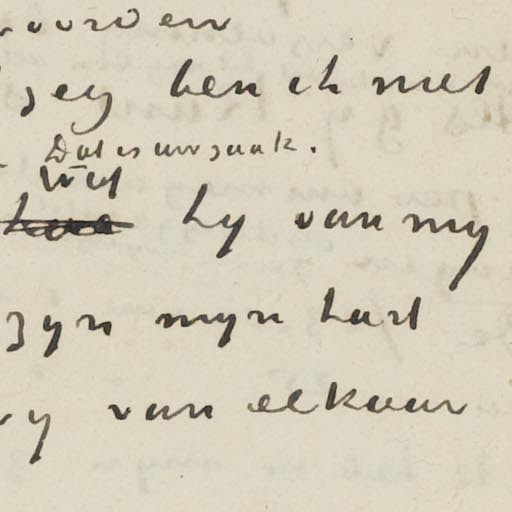 woorden
zeg ben ik met
Dat is uw zaak.
Wat
hoe hy van my
zyn myn hart
wy van elkaar